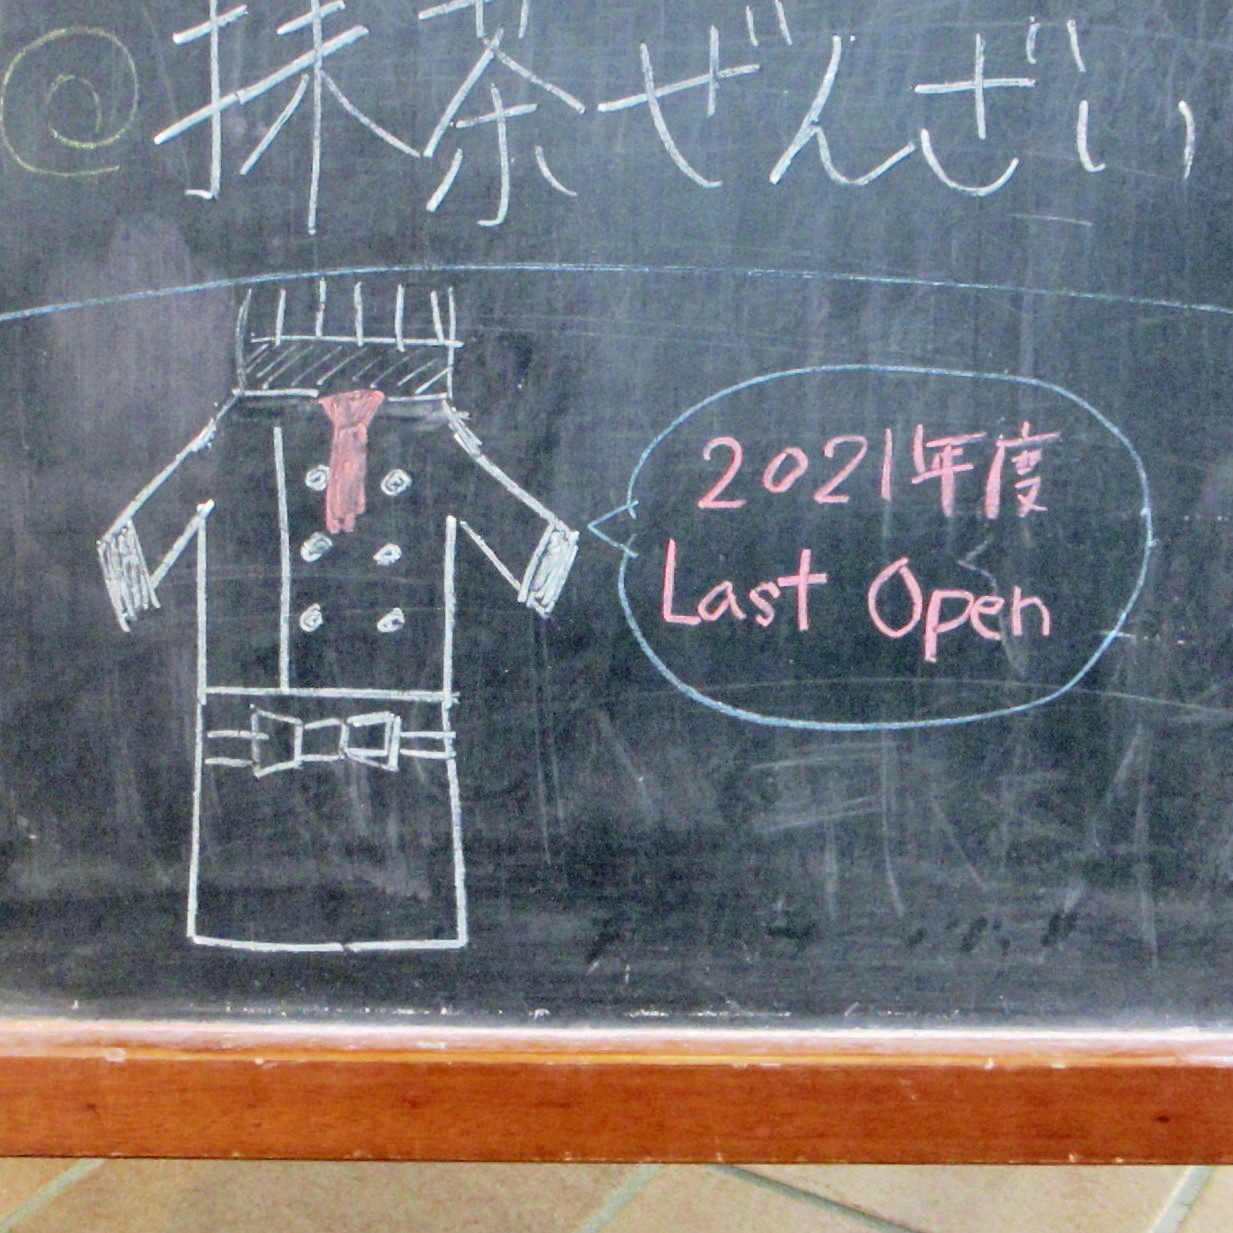 抹茶ぜんざい
2021年度
Last Open